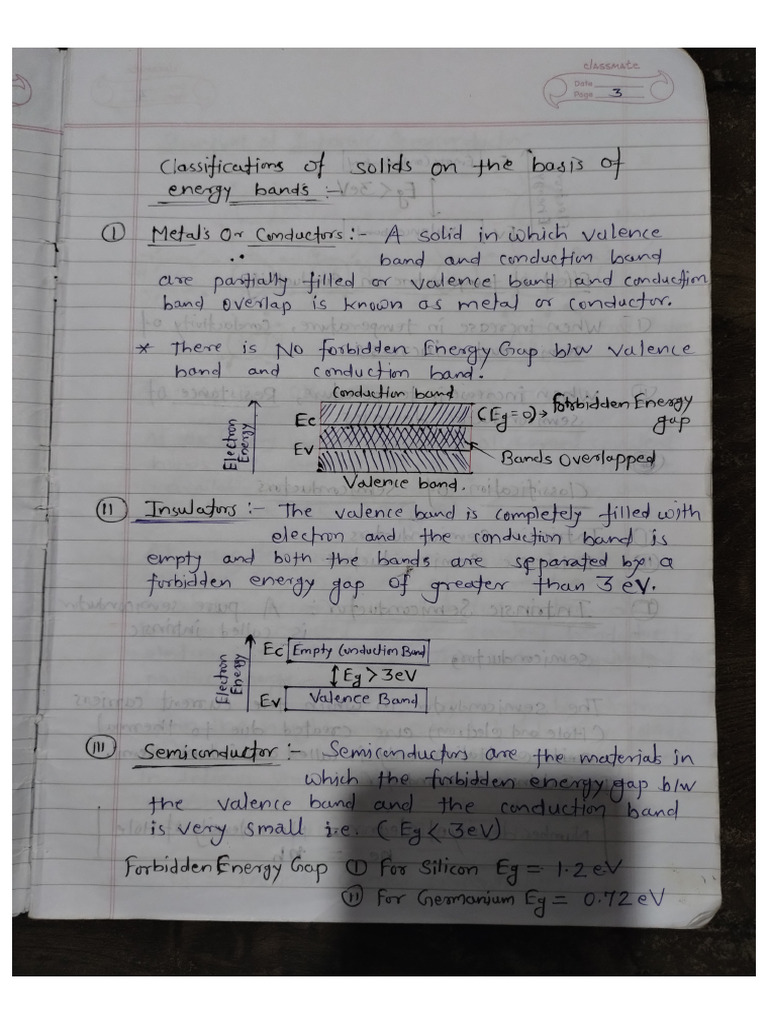 classmate
Date
Page 3
Classifications of solids on the basis of
energy bands :-
(I) Metals Or Conductors :- A solid in which valence
band and conduction band
are partially filled or valence band and conduction
band overlap is known as metal or conductor.
* There is No forbidden Energy Gap b/w valence
band and conduction band.
Conduction band
Electron Energy
Ec
(Eg = 0) → Forbidden Energy gap
Ev
Bands Overlapped
Valence band.
(II) Insulators :- The valence band is completely filled with
electron and the conduction band is
empty and both the bands are separated by a
forbidden energy gap of greater than 3 eV.
Electron Energy
Ec Empty Conduction Band
Eg > 3eV
Ev Valence Band
(III) Semiconductor :- Semiconductors are the materials in
which the forbidden energy gap b/w
the valence band and the conduction band
is very small i.e. (Eg < 3eV)
Forbidden Energy Gap (I) For Silicon Eg = 1.2 eV
(II) For Germanium Eg = 0.72 eV